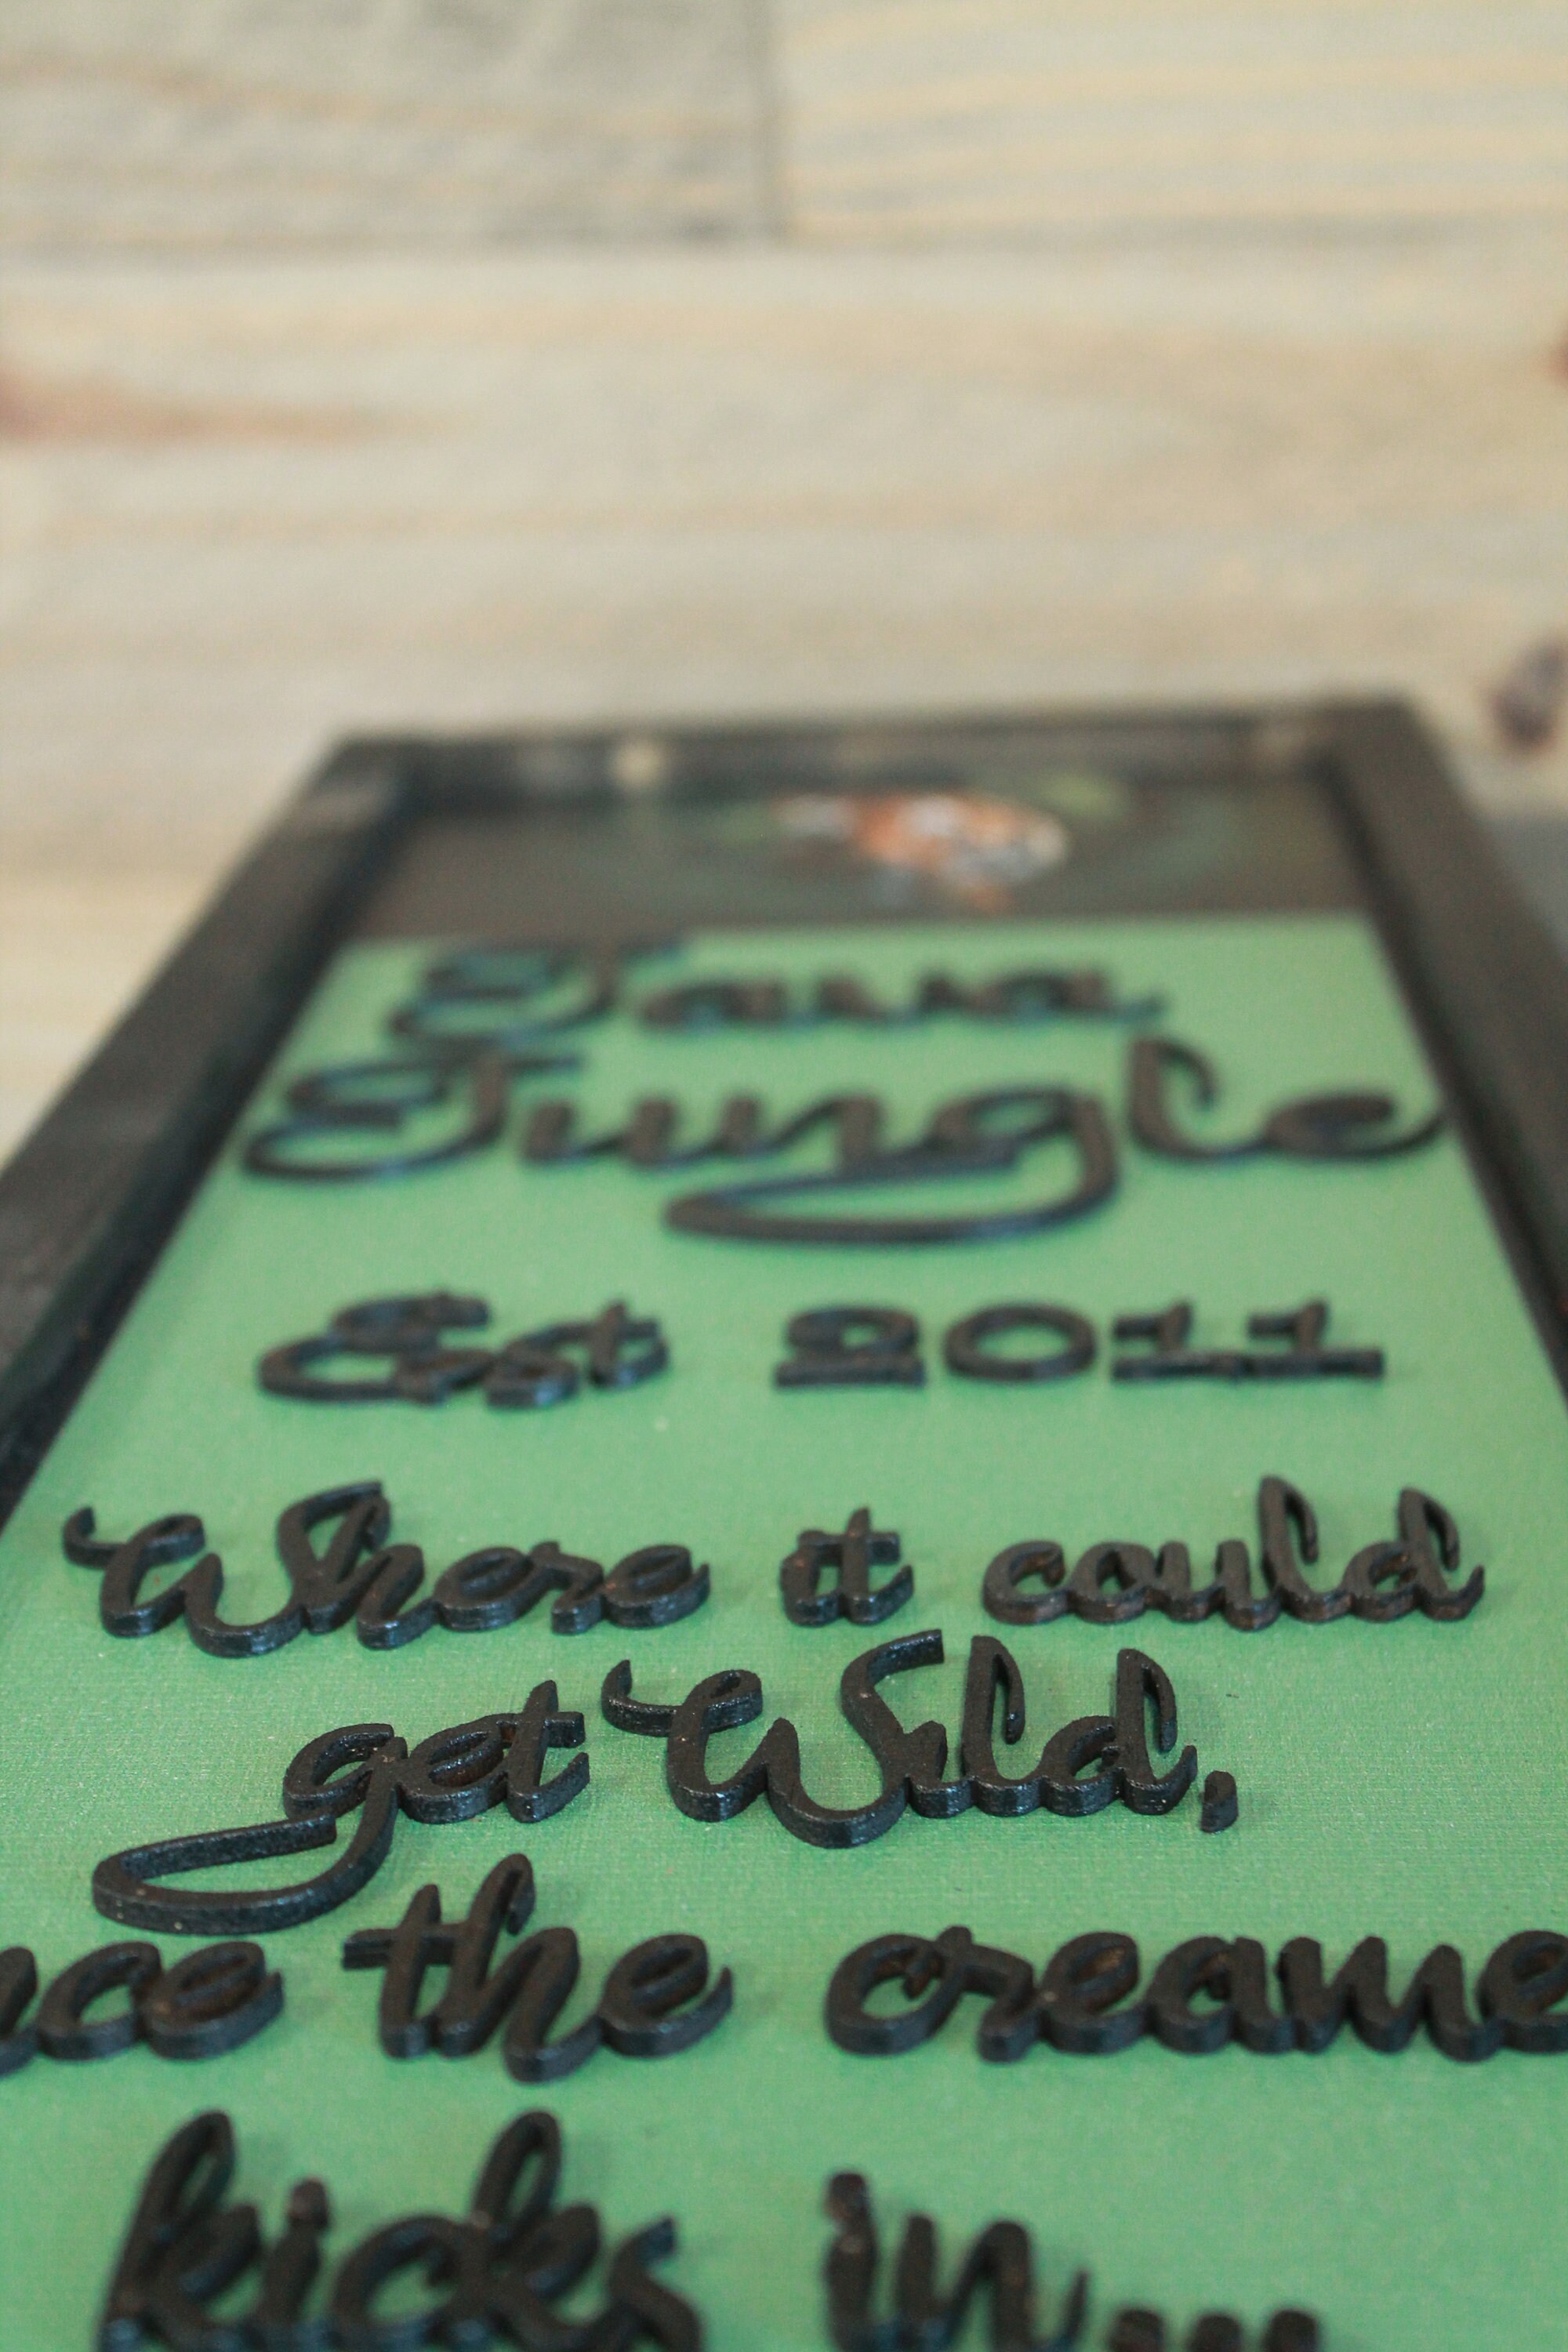 Java
Jungle
Est 2011
Where it could
get Wild,
nce the creame
kicks in...